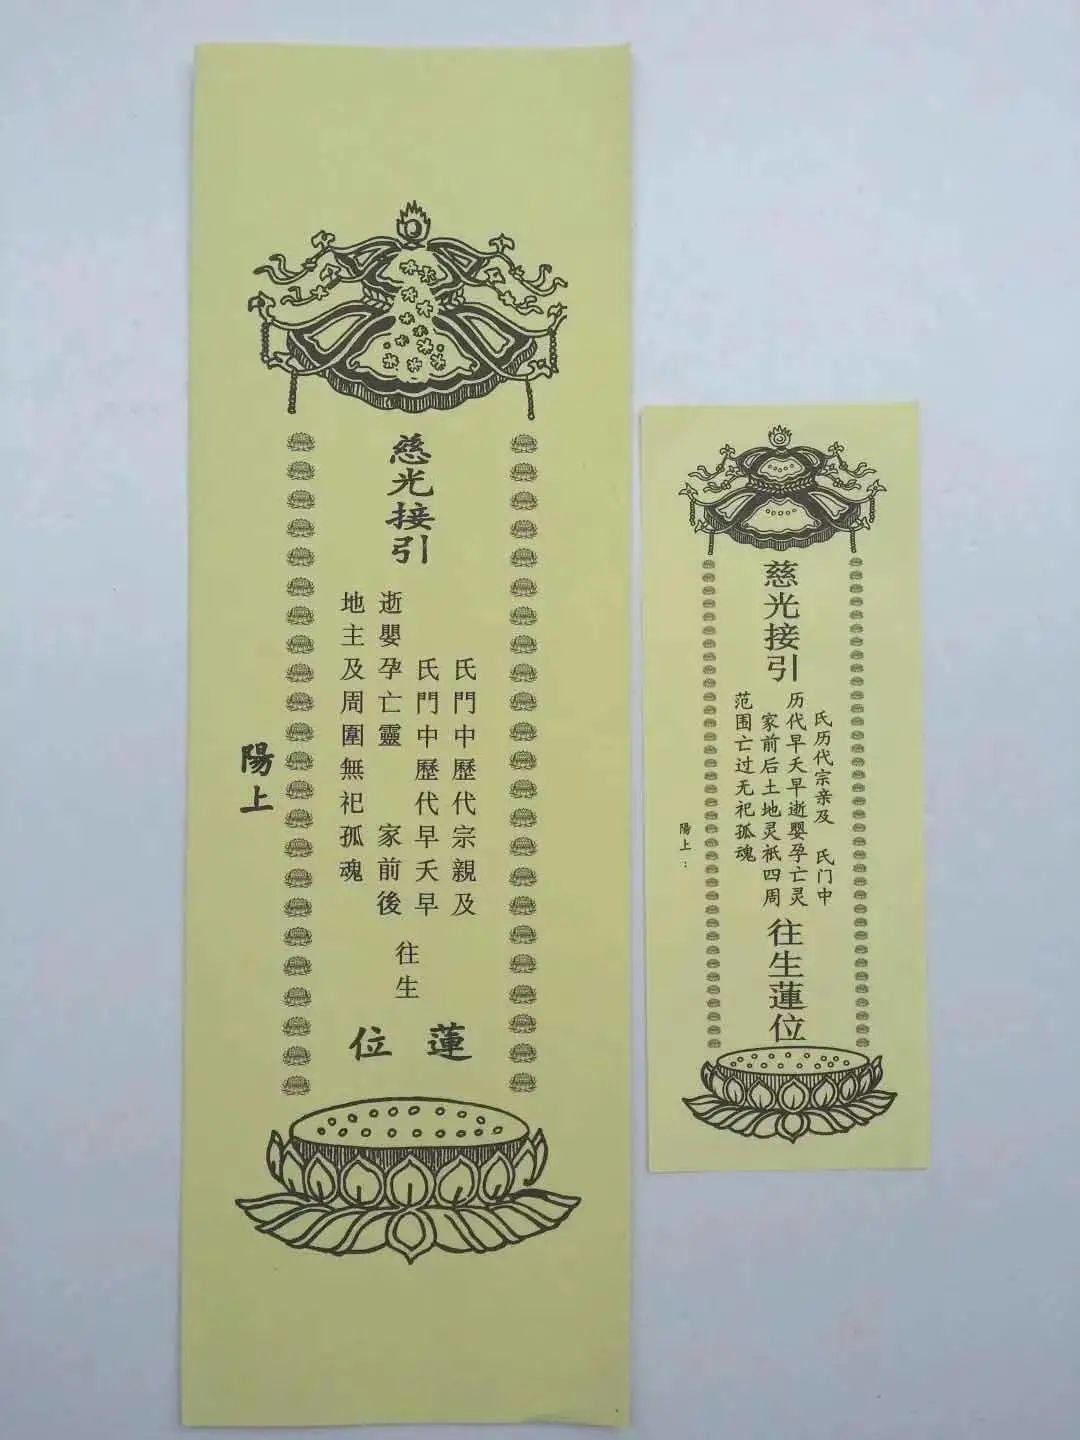 慈光接引
氏門中歷代宗親及
氏門中歷代早夭早
逝嬰孕亡靈 家前後
地主及周圍無祀孤魂
往生
蓮位
陽上
慈光接引
氏历代宗亲及 氏门中
历代早夭早逝婴孕亡灵
家前后土地灵祇四周
范围亡过无祀孤魂
往生蓮位
陽上：